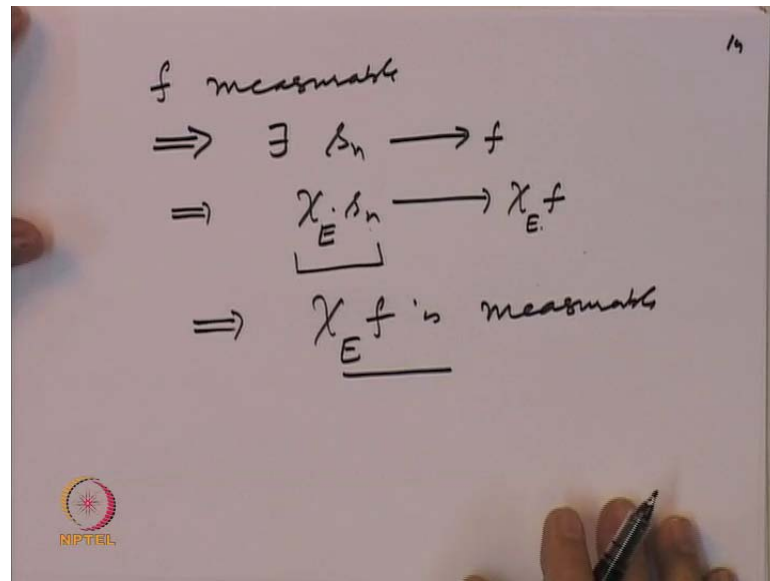 f measurable
⟹ ∃ sₙ ⟶ f
⟹ χ_E · sₙ ⟶ χ_E f
⟹ χ_E f is measurable
NPTEL